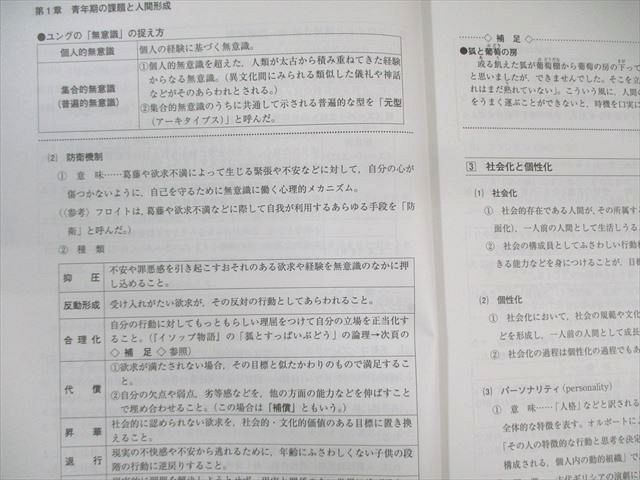 第1章 青年期の課題と人間形成
●ユングの「無意識」の捉え方
個人的無意識
個人の経験に基づく無意識。
集合的無意識
(普遍的無意識)
①個人的無意識を超えた,人類が太古から積み重ねてきた経験
からなる無意識。(異文化間にみられる類似した儀礼や神話
などがそのあらわれとされる。)
②集合的無意識のうちに共通して示される普遍的な型を「元型
(アーキタイプス)」と呼んだ。
(2) 防衛機制
① 意 味……葛藤や欲求不満によって生じる緊張や不安などに対して,自分の心が
傷つかないように,自己を守るために無意識に働く心理的メカニズム。
(〈参考〉フロイトは,葛藤や欲求不満などに際して自我が利用するあらゆる手段を「防
衛」と呼んだ。)
② 種 類
抑 圧
不安や罪悪感を引き起こすおそれのある欲求や経験を無意識のなかに押
し込めること。
反動形成
受け入れがたい欲求が,その反対の行動としてあらわれること。
合 理 化
自分の行動に対してもっともらしい理屈をつけて自分の立場を正当化す
ること。(『イソップ物語』の「狐とすっぱいぶどう」の論理→次頁の
◇ 補 足 ◇参照)
代 償
①欲求が満たされない場合,その目標と似たかわりのもので満足するこ
と。
②自分の欠点や弱点,劣等感などを,他の方面の能力などを伸ばすこと
で埋め合わせること。(この場合は「補償」ともいう。)
昇 華
社会的に認められない欲求を,社会的・文化的価値のある目標に置き換
えること。
退 行
現実の不快感や不安から逃れるために,年齢にふさわしくない子供の段
階の行動に逆戻りすること。
◇ 補 足 ◇
●狐と葡萄の房
或る飢えた狐が葡萄棚から葡萄の房の下って
と思いましたが,できませんでした。そこを立
れはまだ熟れていない」。こういう風に,人間の
をうまく運ぶことができないと,時機を口実に
3 社会化と個性化
(1) 社会化
① 社会的存在である人間が,その所属する
面化),一人前の人間として生活しうる
② 社会の構成員としてふさわしい行動
きる能力などを身につけることが,目
(2) 個性化
① 社会化において,社会の規範や文化
どを形成し,一人前の人間として成長
② 社会化の過程は個性化の過程でもあ
(3) パーソナリティ(personality)
① 意 味……「人格」などと訳される
全体的な特徴を表す。オルポートに
「その人の特徴的な行動と思考を決定
構成される,個人内の動的組織」